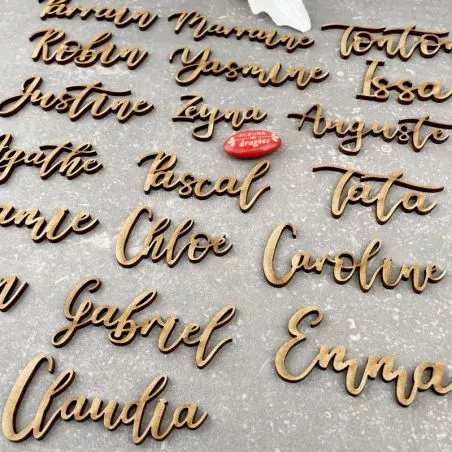 Parrain Marraine Tonton
Robin Yasmine Issa
Justine Zeyna Auguste
FLEURS
DE
dragées
Agathe Pascal Tata
Chloé Caroline
Gabriel Emma
Claudia